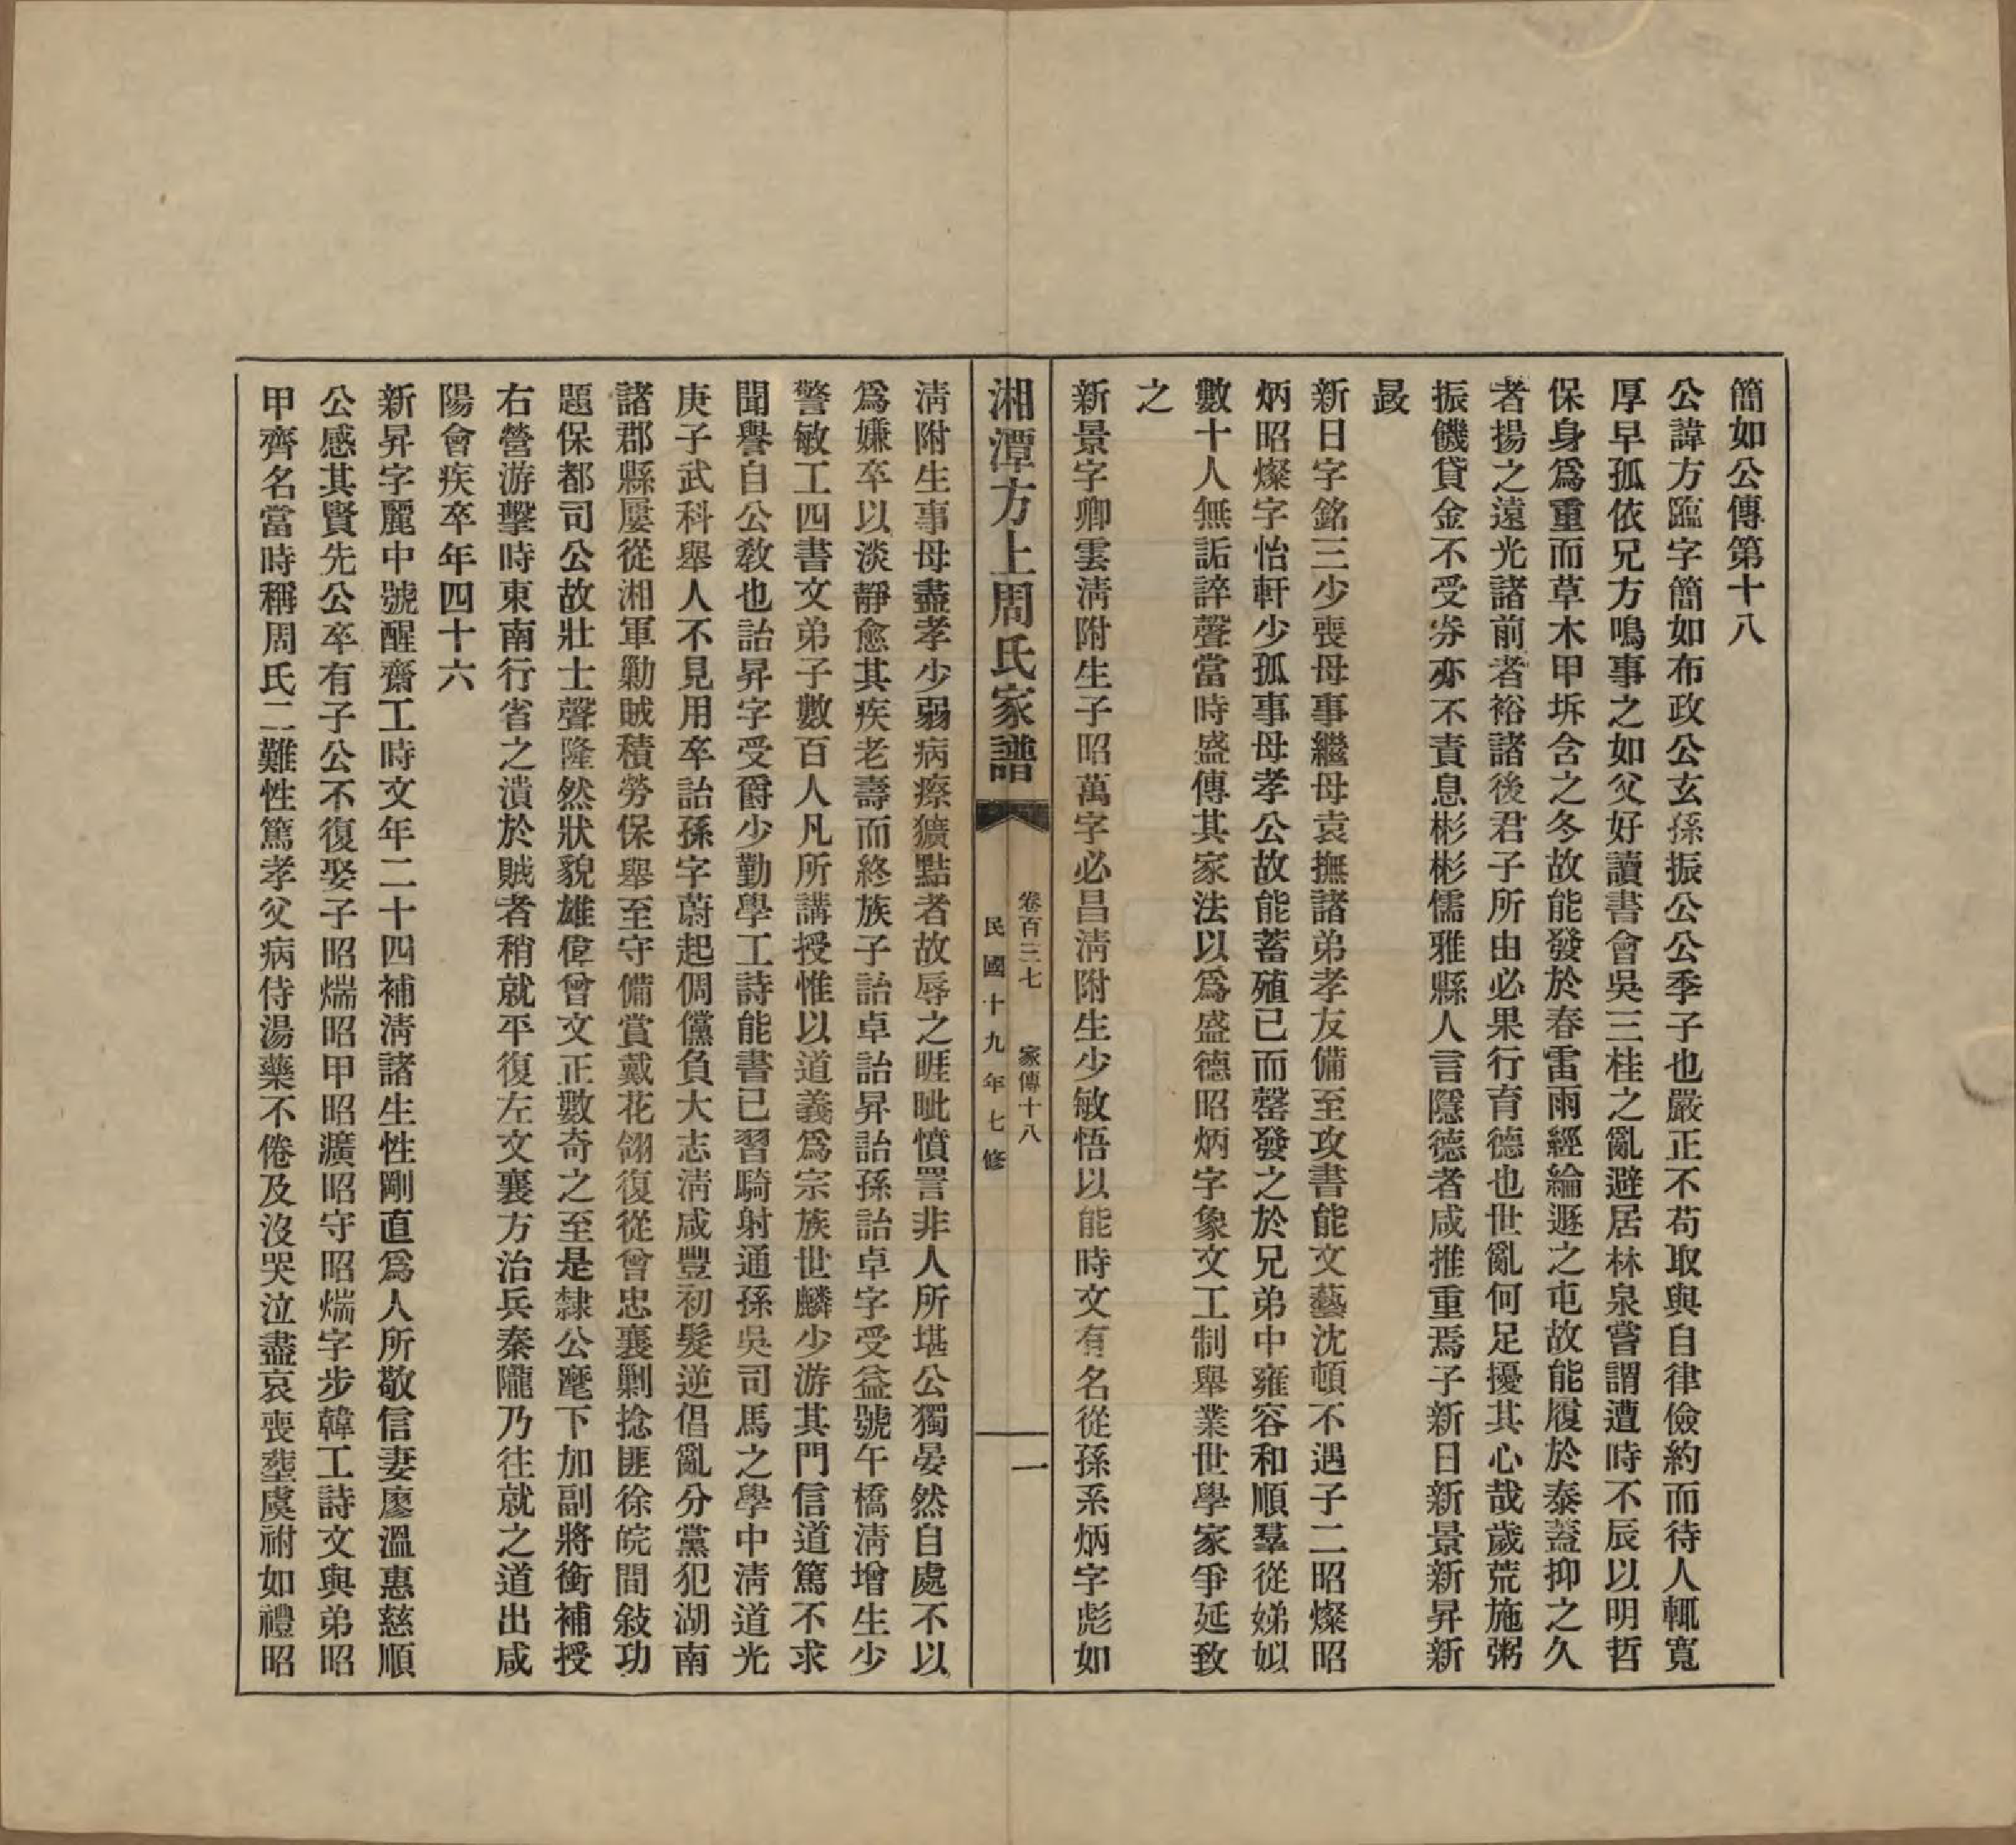 簡如公傳第十八
公諱方臨字簡如布政公玄孫振公公季子也嚴正不苟取與自律儉約而待人輒寬
厚早孤依兄方鳴事之如父好讀書會吳三桂之亂避居林泉嘗謂遭時不辰以明哲
保身爲重而草木甲坼含之冬故能發於春雷雨經綸遯之屯故能履於泰蓋抑之久
者揚之遠光諸前者裕諸後君子所由必果行育德也世亂何足擾其心哉歲荒施粥
振饑貸金不受券亦不責息彬彬儒雅縣人言隱德者咸推重焉子新日新景新昇新
晸
新日字銘三少喪母事繼母袁撫諸弟孝友備至攻書能文藝沈頓不遇子二昭燦昭
炳昭燦字怡軒少孤事母孝公故能蓄殖已而罄發之於兄弟中雍容和順羣從娣姒
數十人無詬誶聲當時盛傳其家法以爲盛德昭炳字象文工制舉業世學家爭延致
之
新景字卿雲淸附生子昭萬字必昌淸附生少敏悟以能時文有名從孫系炳字彪如
湘潭方上周氏家譜
卷百三七　家傳十八
一
民國十九年七修
淸附生事母盡孝少弱病瘵獷點者故辱之睚眦憤詈非人所堪公獨晏然自處不以
爲嫌卒以淡靜愈其疾老壽而終族子詒卓詒昇詒孫詒卓字受益號午橋淸增生少
警敏工四書文弟子數百人凡所講授惟以道義爲宗族世麟少游其門信道篤不求
聞譽自公敎也詒昇字受爵少勤學工詩能書已習騎射通孫吳司馬之學中淸道光
庚子武科舉人不見用卒詒孫字蔚起倜儻負大志淸咸豐初髮逆倡亂分黨犯湖南
諸郡縣屢從湘軍勦賊積勞保舉至守備賞戴花翎復從曾忠襄剿捻匪徐皖間敍功
題保都司公故壯士聲隆然狀貌雄偉曾文正數奇之至是隸公麾下加副將銜補授
右營游擊時東南行省之潰於賊者稍就平復左文襄方治兵秦隴乃往就之道出咸
陽會疾卒年四十六
新昇字麗中號醒齋工時文年二十四補淸諸生性剛直爲人所敬信妻廖溫惠慈順
公感其賢先公卒有子公不復娶子昭煓昭甲昭灝昭守昭煓字步韓工詩文與弟昭
甲齊名當時稱周氏二難性篤孝父病侍湯藥不倦及沒哭泣盡哀喪塟虞祔如禮昭